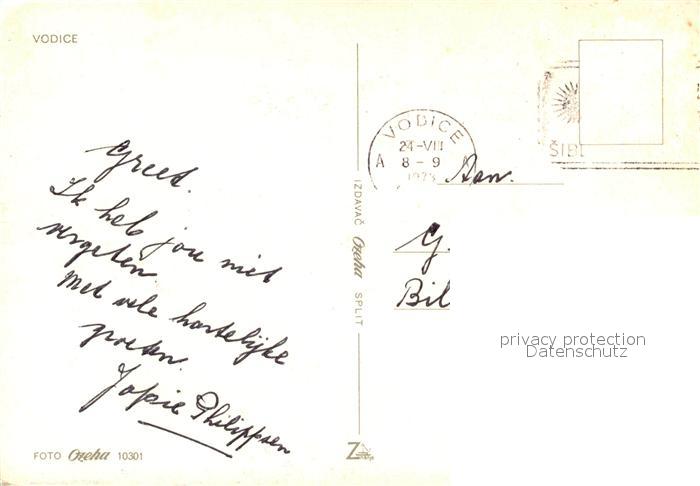 VODICE
Greet.
Ik heb jou niet
vergeten
Met vele hartelijke
groeten.
Jopie Philippsen
FOTO Ozeha 10301
IZDAVAČ Ozeha SPLIT
VODICE
24-VII
A 8-9
1973
ŠIB
Aan.
G.
Bil
privacy protection
Datenschutz